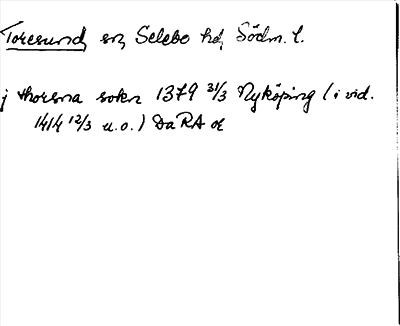 Toresund sn, Selebo hd, Södm. l.
j thoresna sokn 1379 31/3 Nyköping (i vid.
1414 12/3 u.o.) DaRA or